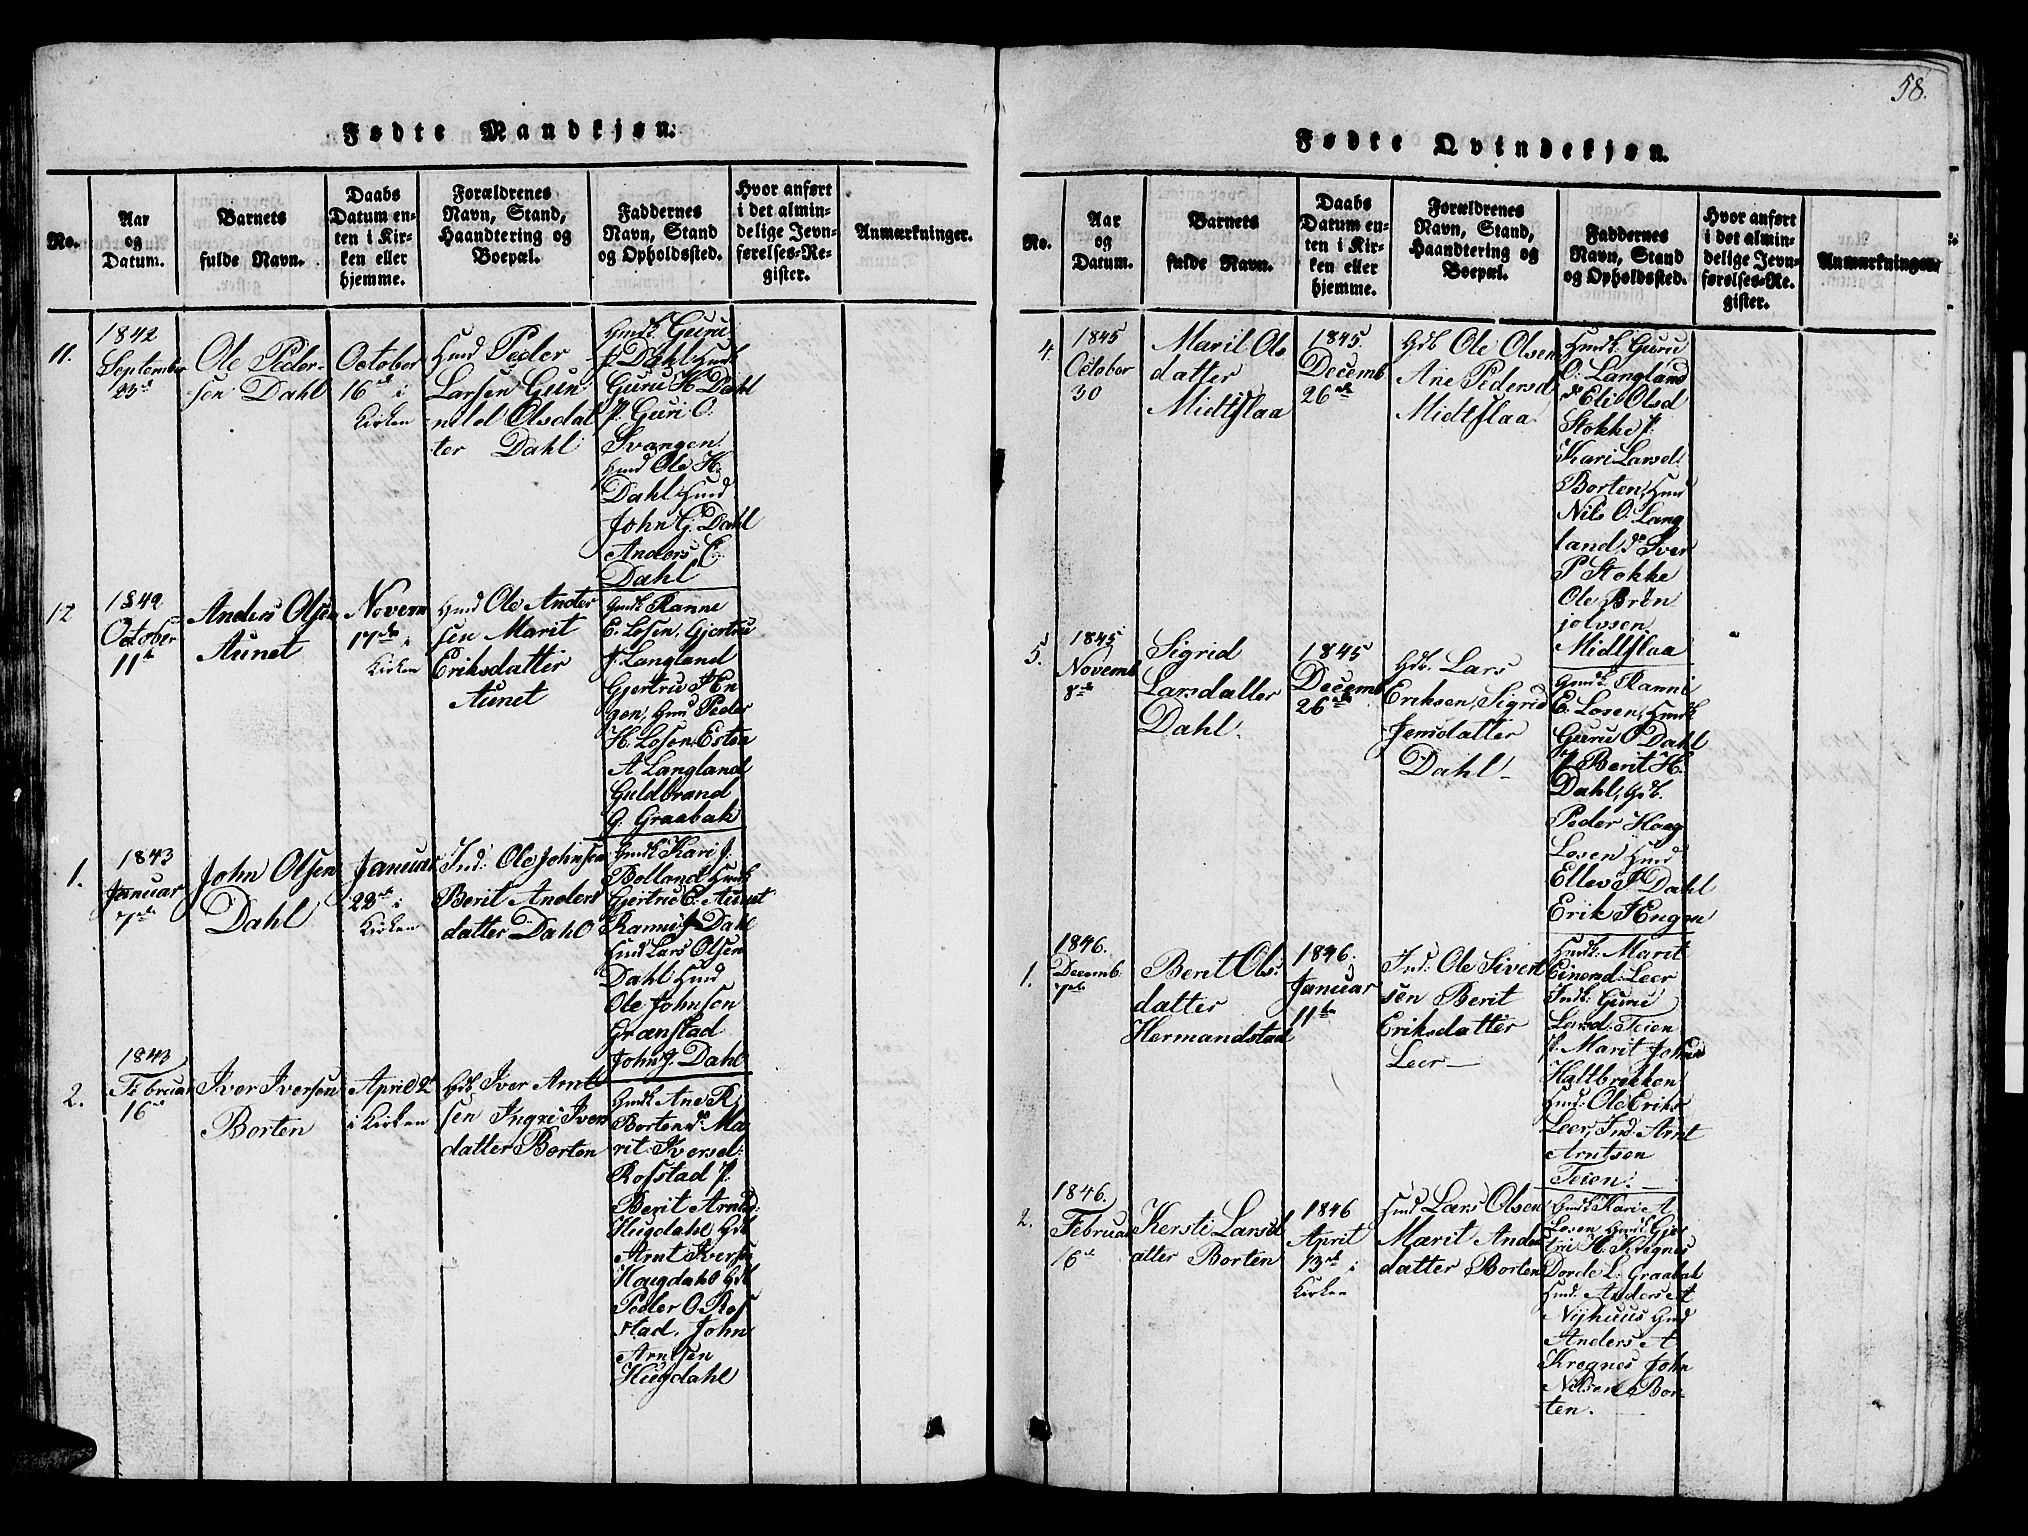 58.
Fødte Mandkjøn.
No.
Aar
og
Datum.
Barnets
fulde Navn.
Daabs
Datum en-
ten i Kir-
ken eller
hjemme.
Forældrenes
Navn, Stand,
Haandtering og
Boepæl.
Faddernes
Navn, Stand
og Opholdssted.
Hvor anført
i det almin-
delige Jevn-
førelses-Re-
gister.
Anmærkninger.
11.
1842
September
23d
Ole Peder-
sen Dahl
October
16de i
Kirken
Hmd Peder
Larsen Gun-
nild Olsdat
ter Dahl
Hmdk Guru
P Dahl Hmdk
Guru H Dahl
P. Guri O.
Svangen
Hmd Ole H.
Dahl Hmd
John G. Dahl
Anders E
Dahl
12
1842
October
11te
Anders Olsen
Aunet
Novem
17de i
Kirken
Hmd Ole Ander
sen Marit
Eriksdatter
Aunet
Gmdk Ranne
E. Losen, Gjertru
J. Langland
Gjertru J En
gen, Hmd Peder
H. Losen Esten
A Langland
Guldbrand
G. Graabak
1.
1843
Januar
7de
John Olsen
Dahl
Januar
22de i
Kirken
Ind: Ole Johnsen
Berit Anders
datter Dahl
Gmdk Kari J.
Bolland Hmdk
Gjertru E. Aunet
Ranne J Dahl
Hmd Lars Olsen
Dahl Hmd
Ole Johnson
Grænstad
John J. Dahl
2.
1843
Februar
16de
Iver Iversen
Borten
April 2
i Kirken
Gdb Iver Arnt
sen Ingri Ivers
datter Borten
Gmdk Ane R.
Borten do Ma
rit Iversd:
Rosstad P.
Berit Arntsd:
Hugdahl Gdb
Arnt Iversen
Haugdahl Gdb
Peder O. Ros
stad. John
Arntsen
Hugdahl
Fødte Qvindekjøn.
No.
Aar
og
Datum.
Barnets
fulde Navn.
Daabs
Datum en-
ten i Kir-
ken eller
hjemme.
Forældrenes
Navn, Stand,
Haandtering og
Boepæl.
Faddernes
Navn, Stand
og Opholdssted.
Hvor anført
i det almin-
delige Jevn-
førelses-Re-
gister.
Anmærkninger
4
1845
October
30
Marit Ols
datter
Midtflaa
1845
Decemb
26de
Gdb Ole Olsen
Ane Pedersd
Midtflaa
Hmdk Guru
O. Langland
do Eli Olsd
Stokke P.
Kari Larsd.
Borten, Hmd
Nils O. Lang
land, do Iver
P Stokke
Ole Brøn
jolvsen
Midtflaa
5.
1845
Novemb
8de
Sigrid
Larsdatter
Dahl.
1845
Decemb
26de
Gdb. Lars
Eriksen, Sigrid
Jensdatter
Dahl
Gmdk Ranni
E. Losen, Hmdk
Guru O Dahl
P. Berit H.
Dahl, Gdb.
Peder Hoag
Losen Hmd
Ellev P Dahl
Erik J Engen
1.
1846.
Decemb.
7de
Berit Ols:
datter
Hermandstad
1846.
Januar
11te
Ind: Ole Sivert
sen Berit
Eriksdatter
Leer
Hmdk: Marit
Einersd: Leer
Indk: Guru
Larsd: Teien
P. Marit Johnsd
Haltbrekken
Hmd: Ole Eriks
Leer, Ind: Arnt
Arntsen
Teien.
2.
1846.
Februar
6te
Kersti Larsd
atter Borten
1846
April
13de i
Kirken
Hmd Lars Olsen
Marit Anders
datter Borten
Gmdk Kari A
Losen Gmdk Gjer
tru H. Kregnes
Dorde L. Graabak
Hmd: Anders A
Nijhuus Gmd
Anders A
Kregnes John
Nilsen Bor-
ten.